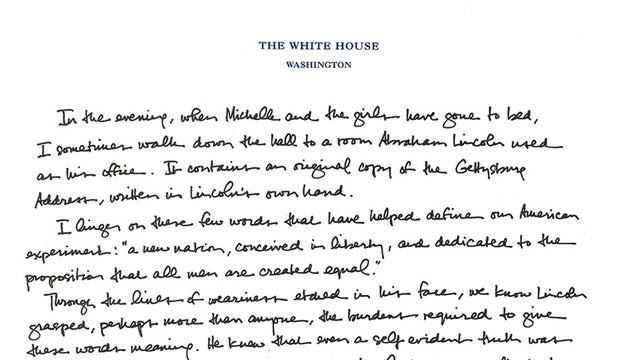 THE WHITE HOUSE
WASHINGTON
In the evening, when Michelle and the girls have gone to bed,
I sometimes walk down the hall to a room Abraham Lincoln used
as his office. It contains an original copy of the Gettysburg
Address, written in Lincoln's own hand.
I linger on these few words that have helped define our American
experiment: "a new nation, conceived in liberty, and dedicated to the
proposition that all men are created equal."
Through the lines of weariness etched in his face, we know Lincoln
grasped, perhaps more than anyone, the burdens required to give
these words meaning. He knew that even a self evident truth was